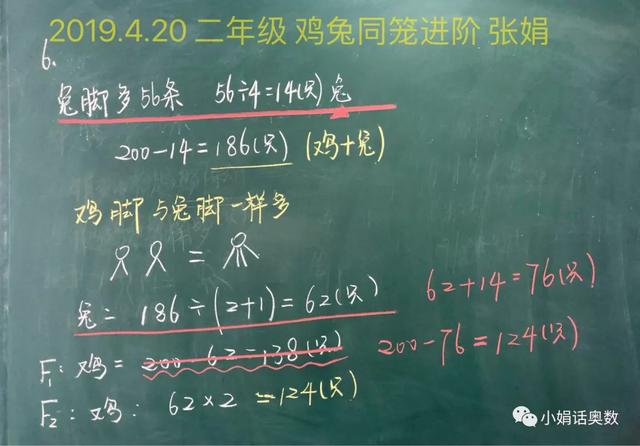 2019.4.20 二年级 鸡兔同笼进阶 张娟
6.
兔脚多56条 56÷4=14(只) 兔
200-14=186(只) (鸡+兔)
鸡脚与兔脚一样多
=
兔= 186÷(2+1)=62(只)
62+14=76(只)
F1:鸡= 200-62=138(只)
200-76=124(只)
F2:鸡: 62×2 =124(只)
小娟话奥数